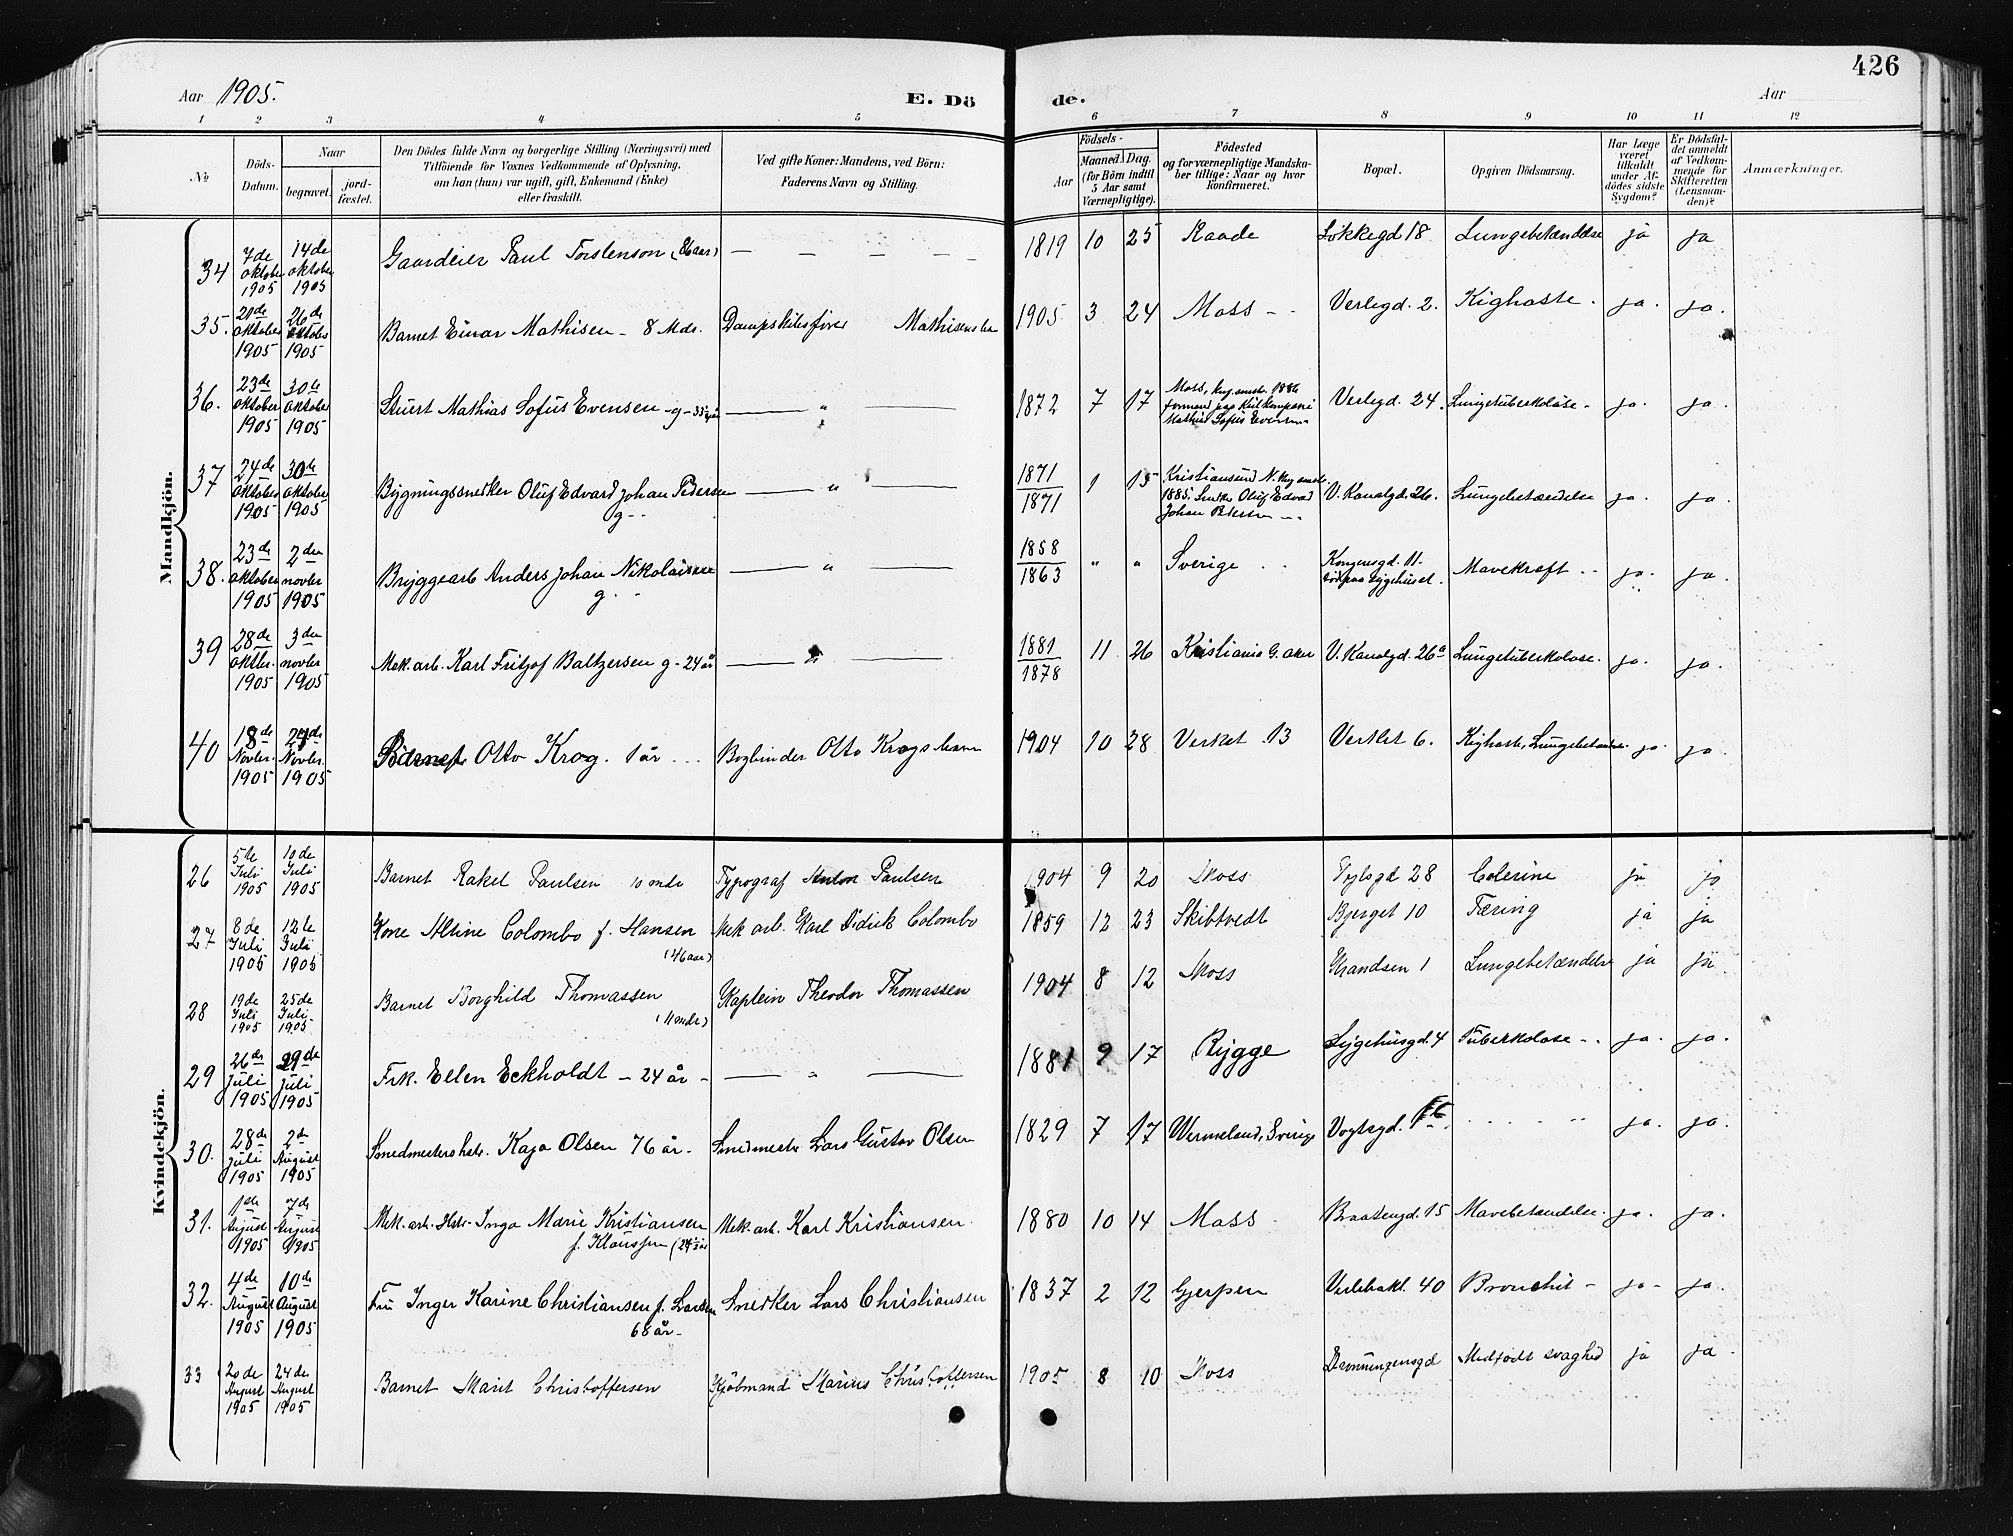 426
Aar 1905.
E. Dö
de.
Aar
1 2 3 4 5 6 7 8 9 10 11 12
No
Döds-
Datum.
Naar
begravet.
jord-
fæstet.
Den Dödes fulde Navn og borgerlige Stilling (Næringsvei) med
Tilföiende for Voxnes Vedkommende af Oplysning,
om han (hun) var ugift, gift, Enkemand (Enke)
eller fraskilt.
Ved gifte Koner: Mandens, ved Börn:
Faderens Navn og Stilling.
Födsels-
Aar
Maaned.
Dag.
(for Börn indtil
5 Aar samt
Værnepligtige).
Födested
og for værnepligtige Mandska-
ber tillige: Naar og hvor
konfirmeret.
Bopæl.
Opgiven Dödsaarsag.
Har Læge
været
tilkaldt
under Af-
dödes sidste
Sygdom?
Er Dödsfal-
det anmeldt
af Vedkom-
mende for
Skifteretten
(Lensman-
den)?
Anmærkninger.
Mandkjön.
34 7de oktober 1905 14de oktober 1905 Gaardeier Paul Torstenson (86 aar) — — — — — 1819 10 25 Raade Løkkegd 18 Lungebetændelse ja ja
35. 20de oktober 1905 26de oktober 1905 Barnet Einar Mathisen - 8 Mdr. Dampskibsfører Mathisen 1905 3 24 Moss - Verlegd. 2. Kighoste. ja. ja.
36. 23de oktober 1905 30te oktober 1905 Stuert Mathias Sofus Evensen - g - 33 år — " — 1872 7 17 Moss, 1886 Mathias Sofus Evensen Verlegd. 24. Lungetuberkolose - ja. ja.
37 24de oktober 1905 30te oktober 1905 Bygningssnedker Oluf Edvard Johan Pedersen g — " — 1871 1871 1 15 Kristiansund N. 1885. Oluf Edvard Johan V. Kanalgd. 26. Lungebetændelse ja. ja.
38. 23de oktober 1905 2den novbr 1905 Bryggearb Anders Johan Nikolaisen g. — " — 1858 1863 " " Sverige Kongensgd. 11. død paa sygehuset. Mavekræft ja. ja.
39 28de oktbr. 1905 3die novbr 1905 Mek. arb. Karl Fritjof Baltzersen g - 24 år — " — 1881 1878 11 26 Kristiania G. aker V. Kanalgd. 26a Lungetuberkolose. ja. ja.
40 18de Novbr. 1905 24de Novbr. 1905 Barnet Otto Krog. 1 år Bogbinder Otto Krogs 1904 10 28 Verket 13 Verket 6. Kighoste, Lungebetændelse ja. ja.
Kvindekjön.
26 5te Juli 1905 10de Juli 1905 Barnet Rakel Paulsen 10 mdr Typograf Anton Paulsen 1904 9 20 Moss Vogtsgd 28 Colerine ja ja
27 8de Juli 1905 12te Juli 1905 Kone Alvine Colombo f. Hansen (46 aar) Mek arb. Karl Didrik Colombo 1859 12 23 Skibtvedt Bjerget 10 Tæring ja ja
28 19de Juli 1905 25de Juli 1905 Barnet Borghild Thomassen (11 mdr) Kaptein Theodor Thomassen 1904 8 12 Moss Strandsen 1 Lungebetændelse ja ja
29 26de Juli 1905 29de Juli 1905 Frk. Ellen Eckholdt - 24 år - — " — 1881 9 17 Rygge Sygehusgd. 4 Tuberkolose ja. ja.
30. 28de Juli 1905 2de August 1905 Smedmesters hstr. Kaja Olsen 76 år. Smedmester Lars Gustav Olsen 1829 7 17 Wermeland, Sverige Vogtsgd. ja. ja.
31. 1de August 1905 7de August 1905 Mek. arb. Hstr. Inga Marie Kristiansen f. Klaussen (24 år Mek. arb. Karl Kristiansen. 1880 10 14 Moss Braatengd. 15 Mavebetændelse. ja. ja.
32. 4de August 1905 10de August 1905 Fru Inger Karine Christiansen f. Larsen 68 år. Snedker Lars Christiansen 1837 2 12 Gjerpen Verlebakk. 40 Bronchit - ja - ja.
33 20de August 1905 24de August 1905 Barnet Marit Christoffersen Kjöbmand Marius Christoffersen 1905 8 10 Moss Dronningensgd Medfødt svaghed ja ja